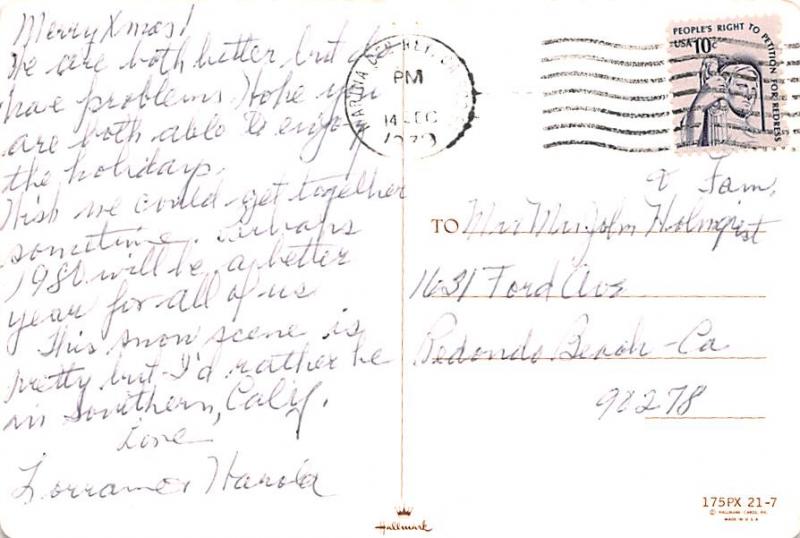 Merry Xmas!
We are both better but do
have problems. Hope you
are both able to enjoy
the holidays.
Wish we could get together
sometime. Perhaps
1980 will be a better
year for all of us
This snow scene is
pretty but I'd rather be
in Southern, Calif.
Love
Lorraine & Harold
MARINA DEL REY, CA
PM
14 DEC
1979
PEOPLE'S RIGHT TO PETITION FOR REDRESS
USA 10c
& Fam.
TO Mr & Mrs John Holmquist
1631 Ford Ave
Redondo Beach - Ca
90278
175PX 21-7
© HALLMARK CARDS, INC.
MADE IN U.S.A.
Hallmark